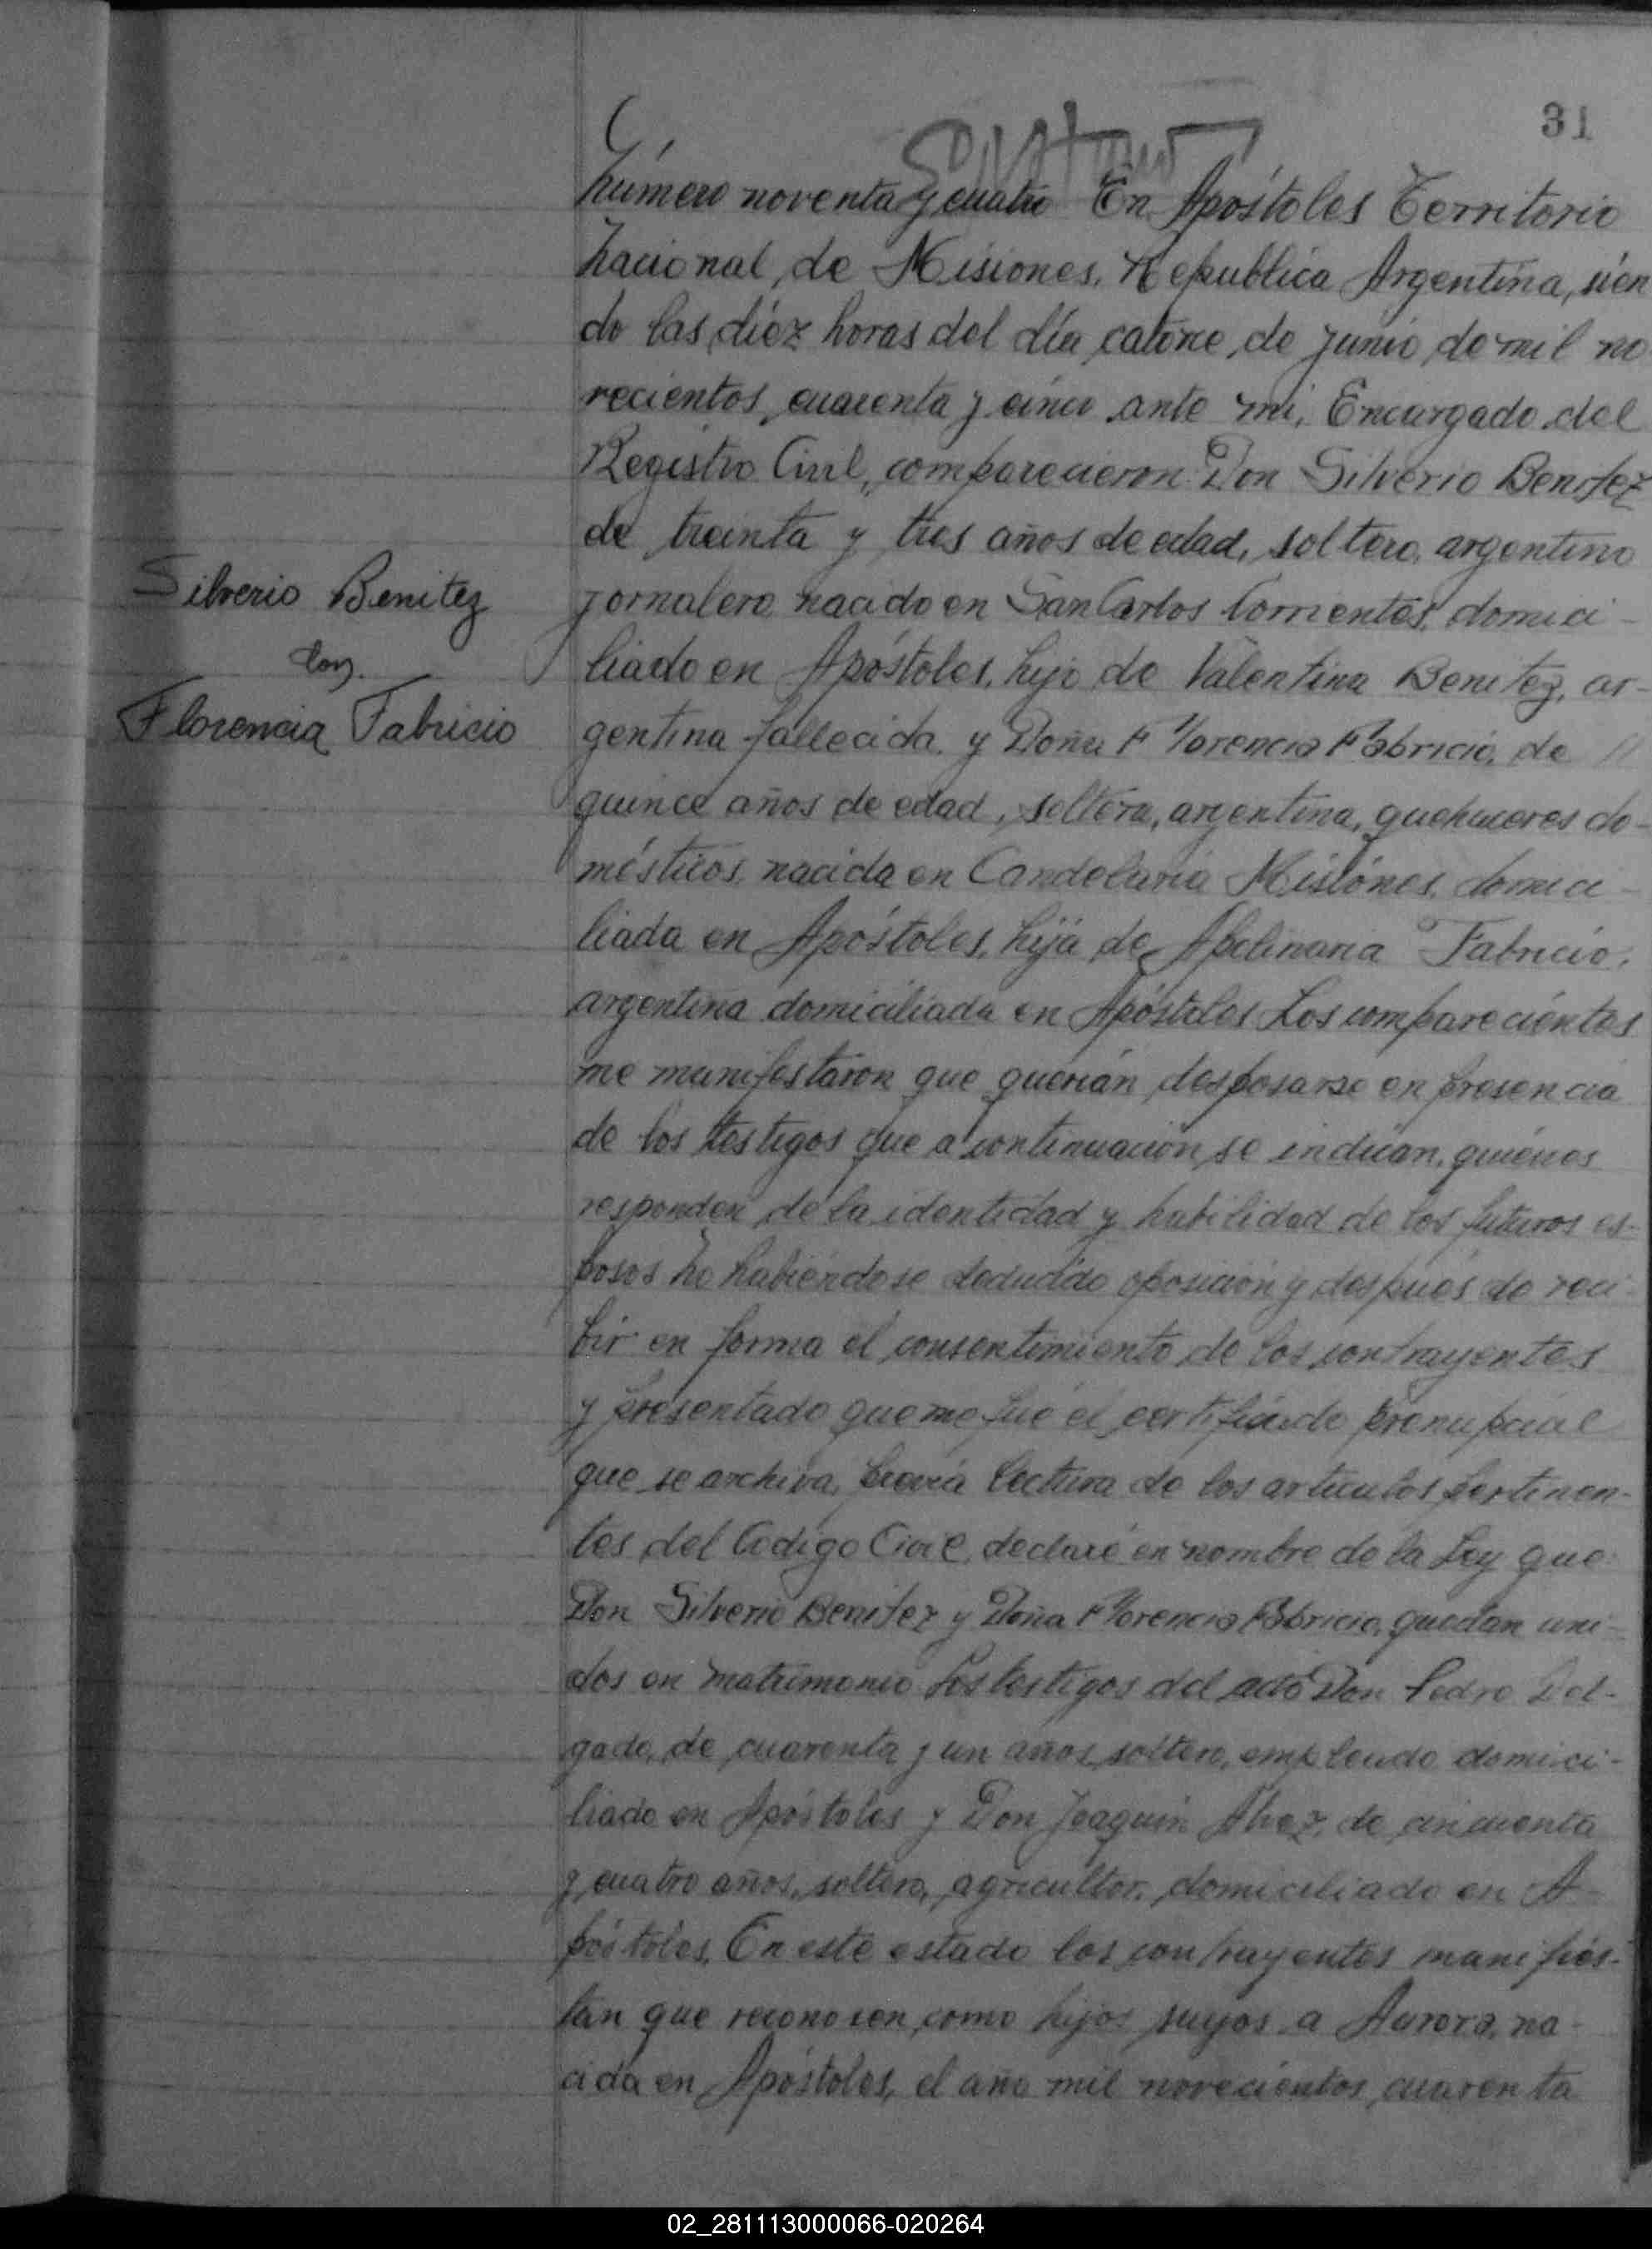 31
Número noventa y cuatro En Apóstoles Territorio
Nacional de Misiones, Republica Argentina, sien
do las diez horas del día catorce de Junio de mil no
vecientos cuarenta y cinco ante mi, Encargado del
Registro Civil, comparecieron: Don Silverio Benitez
de treinta y tres años de edad, soltero, argentino
Silverio Benitez
con
Florencia Fabricio
jornalero nacido en San Carlos Corrientes, domici-
liado en Apóstoles, hijo de Valentina Benitez, ar-
gentina fallecida y Doña Florencia Fabricio, de
quince años de edad, soltera, argentina, quehaceres do-
mésticos, nacida en Candelaria Misiones, domici-
liada en Apóstoles, hija de Apolinaria Fabricio,
argentina domiciliada en Apóstoles Los comparecientes
me manifestaron que querian desposarse en presencia
de los testigos que a continuación se indican, quienes
responden de la identidad y habilidad de los futuros es-
posos No habiéndose deducido oposición y después de reci-
bir en forma el consentimiento de los contrayentes
y presentado que me fué el certificado prenupcial
que se archiva, previa lectura de los articulos pertinen-
tes del Codigo Civil, declaré en nombre de la Ley que:
Don Silverio Benitez y Doña Florencia Fabricio, quedan uni-
dos en matrimonio Los testigos del acto Don Pedro Del-
gado, de cuarenta y un años, soltero, empleado domici-
liado en Apóstoles y Don Joaquin Alvez, de cincuenta
y cuatro años, soltero, agricultor, domiciliado en A-
póstoles. En este estado los contrayentes manifies-
tan que reconocen como hijos suyos a Aurora, na-
cida en Apóstoles, el año mil novecientos cuarenta
02_281113000066-020264